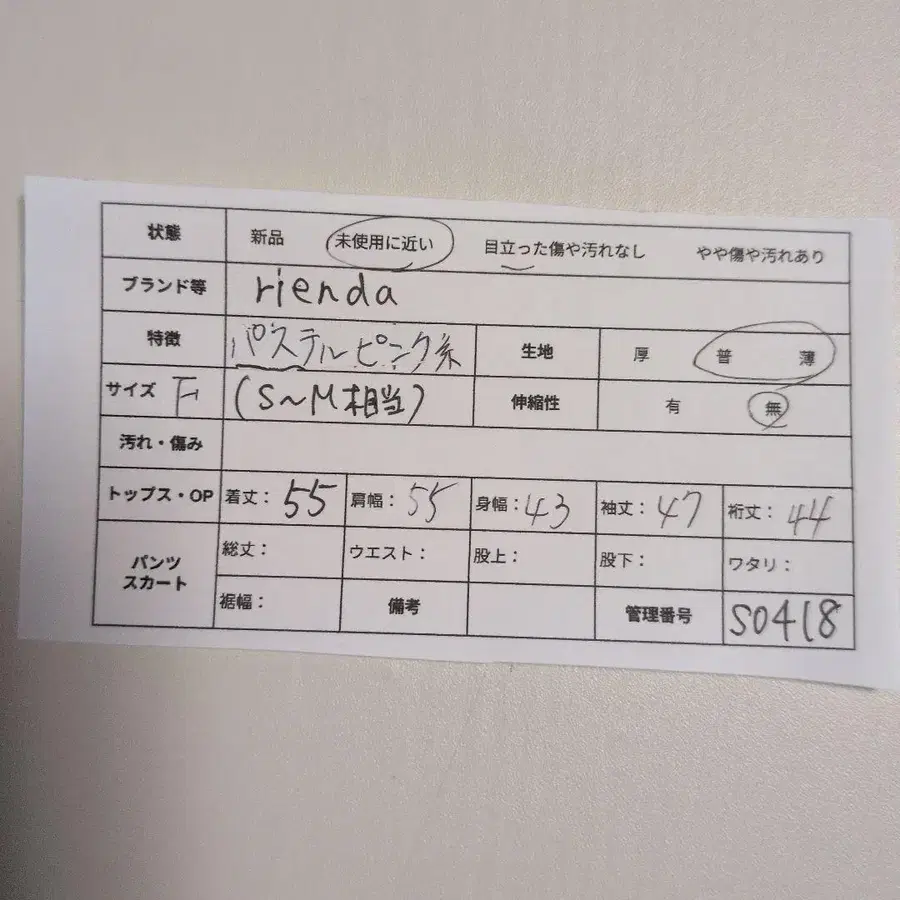 状態 新品 未使用に近い 目立った傷や汚れなし やや傷や汚れあり
ブランド等 rienda
特徴 パステルピンク系 生地 厚 普 薄
サイズ F (S〜M相当) 伸縮性 有 無
汚れ・傷み
トップス・OP 着丈: 55 肩幅: 55 身幅: 43 袖丈: 47 裄丈: 44
パンツ スカート 総丈: ウエスト: 股上: 股下: ワタリ:
裾幅: 備考 管理番号 S0418